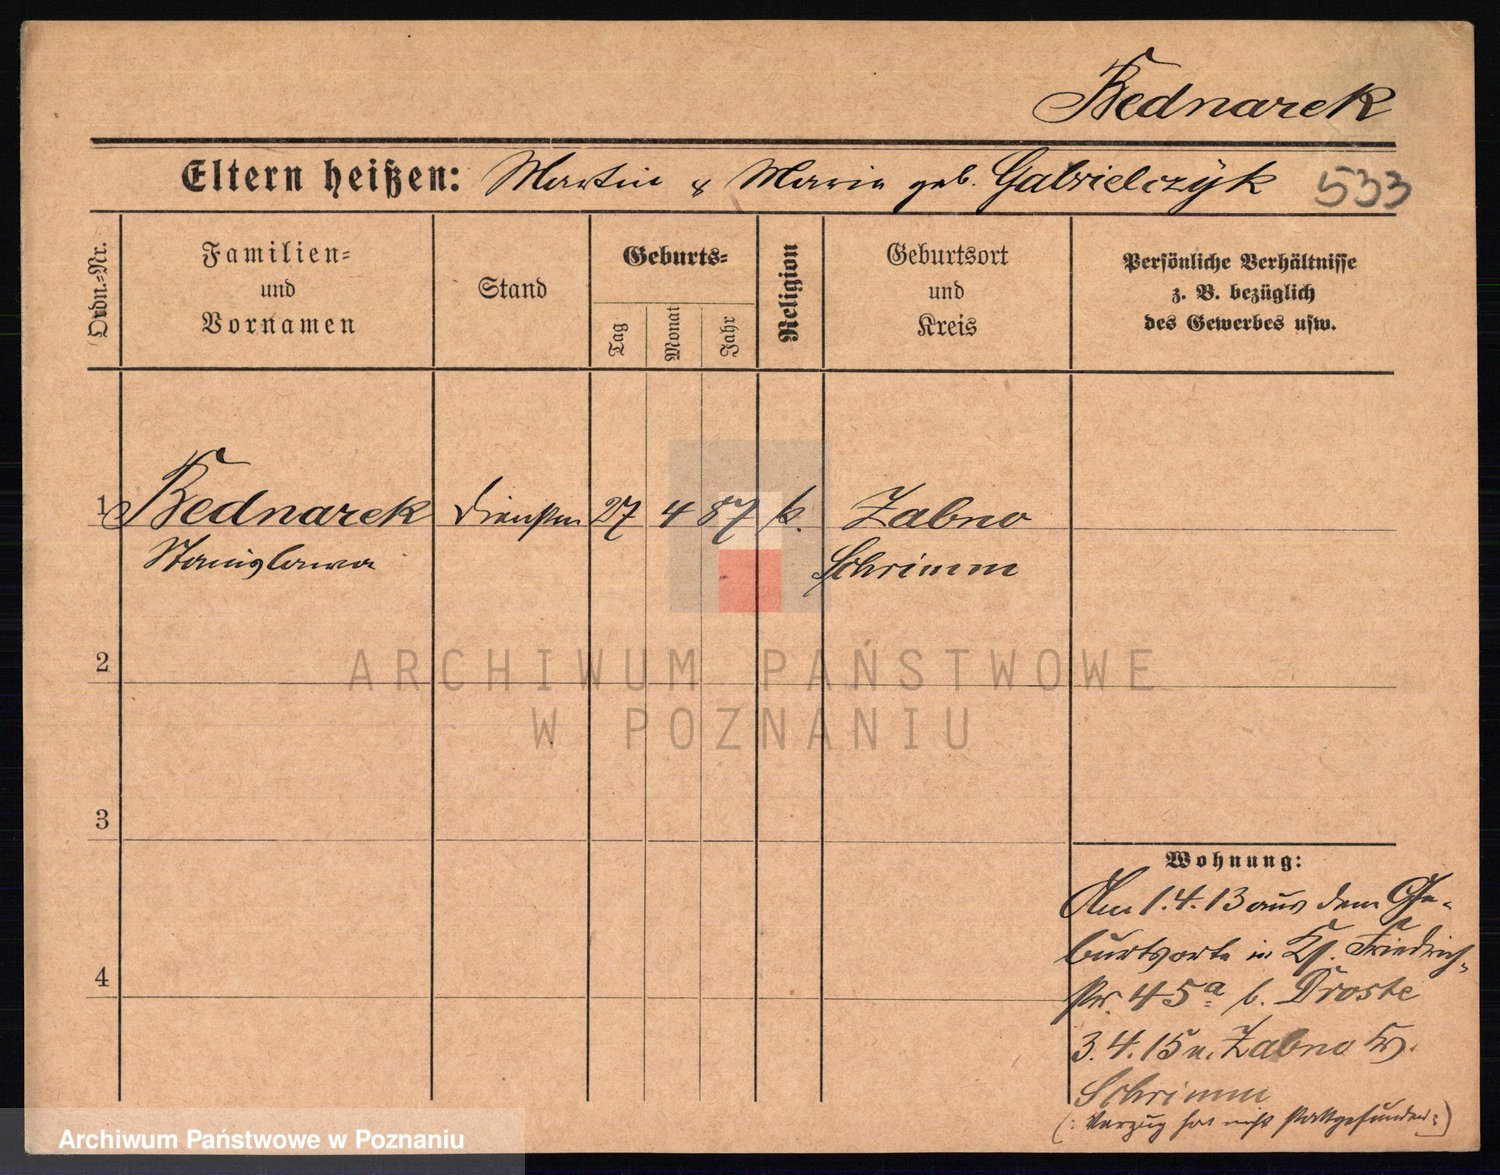 Bednarek
Eltern heißen: Martin & Maria geb. Gabrielczyk 533
Ordn.-Nr.
Familien-
und
Vornamen
Stand
Geburts-
Tag
Monat
Jahr
Religion
Geburtsort
und
Kreis
Persönliche Verhältnisse
z. B. bezüglich
des Gewerbes usw.
1 Bednarek 27 4 87 k. Zabno
Stanislawa Schrimm
2
ARCHIWUM PAŃSTWOWE
W POZNANIU
3
Wohnung:
Am 1.4.13 aus dem Ge-
burtsorte in Friedrich-
4
str. 45a b. Droste
3.4.15 n. Zabno Kr.
Schrimm
(: Verzug hat nicht stattgefunden :)
Archiwum Państwowe w Poznaniu